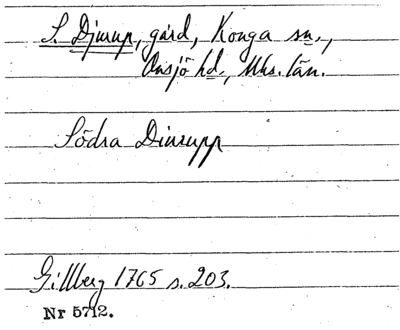 S. Djurup, gård, Konga sn.,
Onsjö hd., Mhs. län.
Södra Diurupp
Gillberg 1765 s. 203.
Nr 5712.